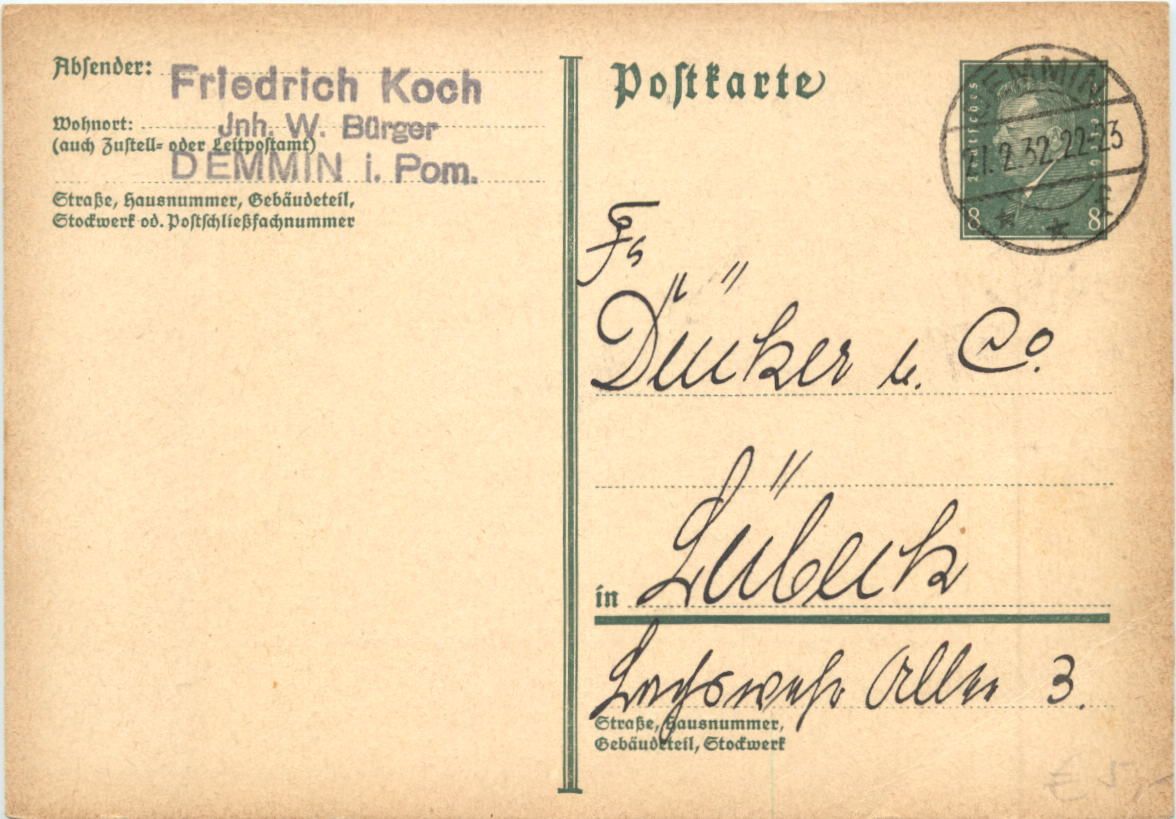 Absender:
Friedrich Koch
Wohnort:
Jnh. W. Bürger
(auch Zustell- oder Leitpostamt)
DEMMIN i. Pom.
Straße, Hausnummer, Gebäudeteil,
Stockwerk od. Postschließfachnummer
Postkarte
DEMMIN
21.2.32.22-23
Deutsches
8 8
Fa
Dücker u. Co.
Lübeck
in
Lachswehr Allee 3.
Straße, Hausnummer,
Gebäudeteil, Stockwerk
€ 5,-